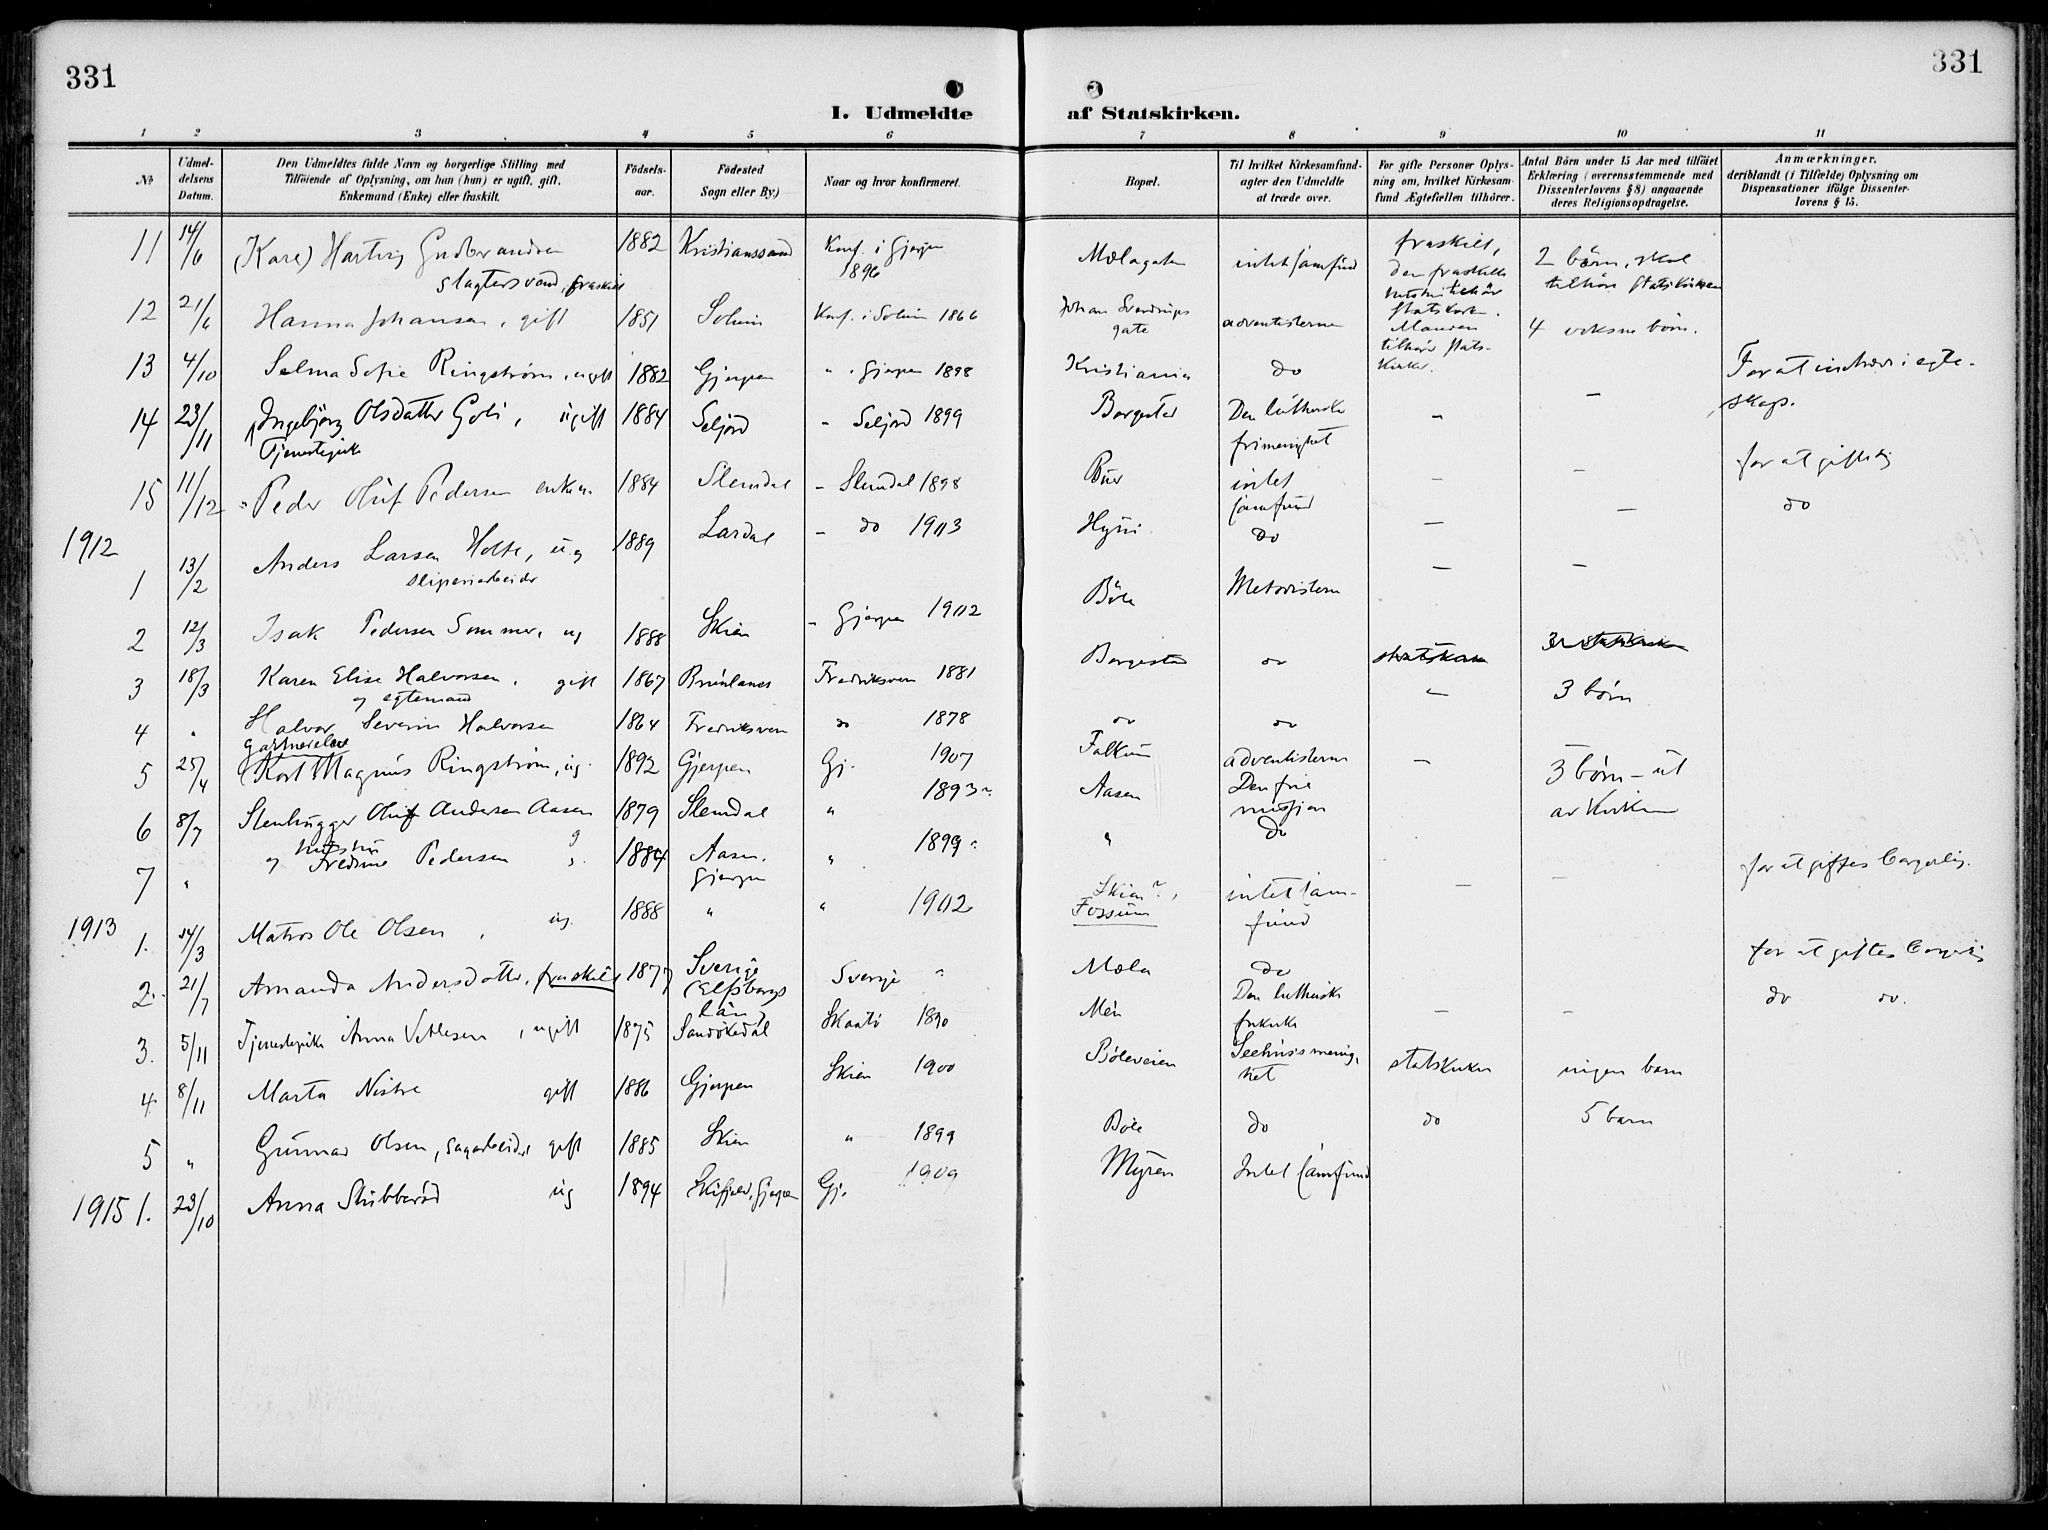 331
331
I. Udmeldte af Statskirken.
1 2 3 4 5 6 7 8 9 10 11
№
Udmeldelsens Datum.
Den Udmeldtes fulde Navn og borgerlige Stilling med
Tilföiende af Oplysning, om han (hun) er ugift, gift,
Enkemand (Enke) eller fraskilt.
Födselsaar.
Födested
Sogn eller By.)
Naar og hvor konfirmeret.
Bopæl.
Til hvilket Kirkesamfund-
agter den Udmeldte
at træde over.
For gifte Personer Oplys-
ning om, hvilket Kirkesam-
fund Ægtefællen tilhörer.
Antal Börn under 15 Aar med tilföiet
Erklæring (overensstemmende med
Dissenterlovens § 8) angaaende
deres Religionsopdragelse.
Anmærkninger,
deriblandt (i Tilfælde) Oplysning om
Dispensationer ifölge Dissenter-
lovens § 15.
11 14/6 (Kare) Hartvig Gudbrandsen 1882 Kristianssand Konf. i Gjerpen 1896 Mælagaten intet samfund fraskilt, 2 børn, skal
tilhøre statskirken
12 21/6 Hanna Johansen, gift 1851 Solum Konf. i Solum 1866 Johan Sverdrups gate adventisterne Manden tilhører stats-
kirken. 4 voksne børn.
13 4/10 Selma Sofie Ringstrøm, ugift 1882 Gjerpen " Gjerpen 1898 Kristiania do For at indtræde i egte-
skap.
14 23/11 Ingebjørg Olsdatter Goli, ugift 1884 Seljord " Seljord 1899 Borgestad Den lutherske
Tjenestepike frimenighet - -
15 11/12 Peder Oluf Pedersen enkem. 1884 Slemdal - Slemdal 1898 Bur intet samfund - - for at gifte sig
1912
1 13/2 Anders Larsen Holte, ug 1889 Lardal - do 1903 Hyni do - - do
sliperiarbeider
2 12/3 Isak Pedersen Sommer, ug 1888 Skien - Gjerpen 1902 Böle Metodisterne - -
3 18/3 Karen Elise Halvorsen, gift 1867 Brunlanes Fredriksvern 1881 Borgestad do statskirken
og egtemand
4 " Halvor Severin Halvorsen 1864 Fredriksvern do 1878 do do - 3 børn
gartnerelev
5 25/4 Karl Magnus Ringstrøm, ug. 1892 Gjerpen Gj. 1907 Falkum adventisterne -
6 8/7 Stenhugger Oluf Andersen Aasen 1879 Slemdal " 1893 Aasen Den frie
misjon 3 børn - ut
av kirken
7 " og hustru Fredrine Pedersen 1884 Aasen, Gjerpen " 1899 " do
1913
1. 14/3 Matros Ole Olsen, ug. 1888 " " 1902 Skien?, Fossum intet sam-
fund - - for at giftes borgerlig.
2. 21/7 Amanda Andersdotter, fraskilt 1877 Sverige (Elfsborgs län) Sverige " Mæla do for at giftes borgerlig
3. 5/11 Tjenestepike Anna Vetlesen, ugift 1875 Sandökedal Skaatö 1890 Mén Den lutherske
frikirke - - do do.
4. 8/11 Marta Nistre gift 1886 Gjerpen Skien 1900 Bøleveien Seehuus's menig-
het statskirken ingen barn
5 " Gunnar Olsen, sagarbeider gift 1885 Skien " 1899 Böle do do 5 barn
1915 1. 23/10 Anna Stubberød ug 1894 Gjerpen Gj. 1909 Myren Intet samfund